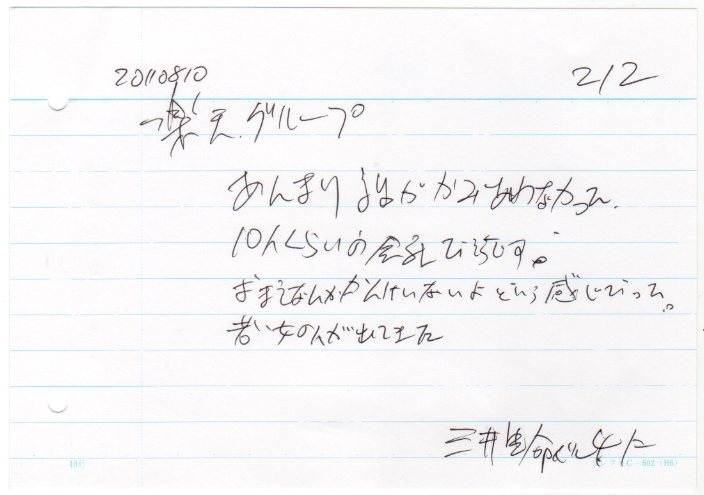 20110810
2/2
楽天グループ
あんまり話がかみあわなかった。
10人くらいの会社で
おまえなんかかんけいないよという感じだった。
若い女の人が出てきた
三井生命ビル
10行
C-602 (H6)